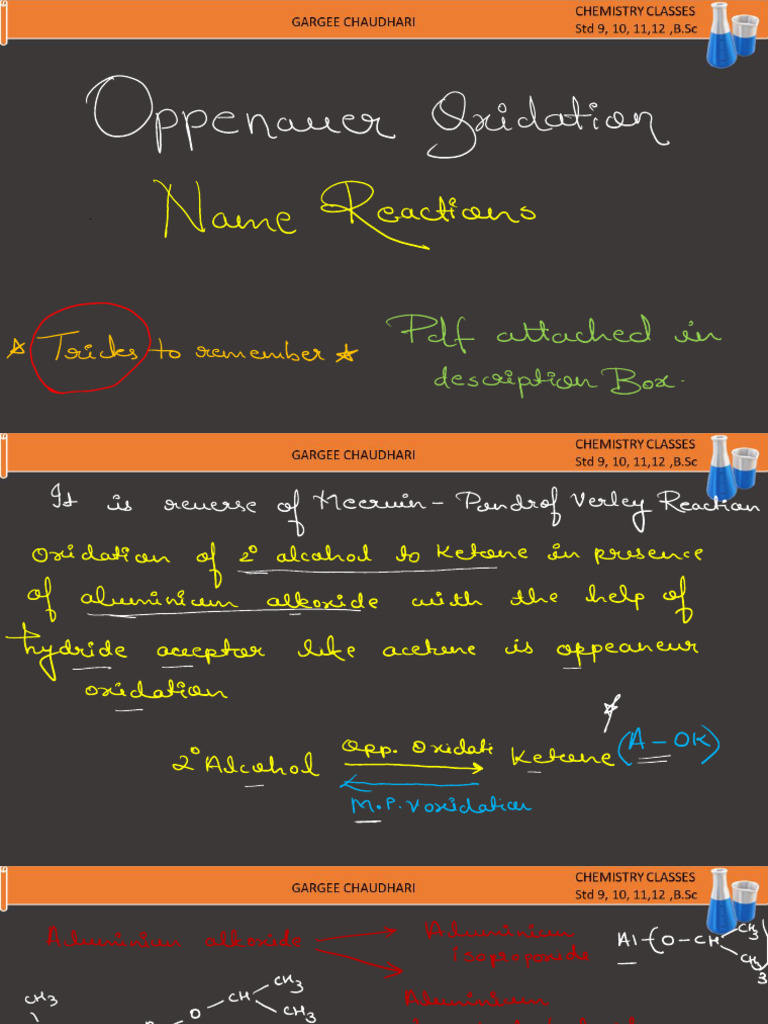 GARGEE CHAUDHARI
CHEMISTRY CLASSES
Std 9, 10, 11,12 ,B.Sc
Oppenauer Oxidation
Name Reactions
☆ Tricks to remember ☆
Pdf attached in
description Box.
GARGEE CHAUDHARI
CHEMISTRY CLASSES
Std 9, 10, 11,12 ,B.Sc
It is reverse of Meerwin - Pondrof Verley Reaction
oxidation of 2° alcohol to Ketone in presence
of aluminium alkoxide with the help of
hydride acceptor like acetone is oppeaneur
oxidation
2° Alcohol Opp. Oxidati Ketone (A - OK)
M.P.V oxidation
GARGEE CHAUDHARI
CHEMISTRY CLASSES
Std 9, 10, 11,12 ,B.Sc
Aluminium alkoxide
Aluminium
isopropoxide
Al-(O-CH
CH3
CH3
3
Aluminium
CH3
O-CH
CH3
CH3